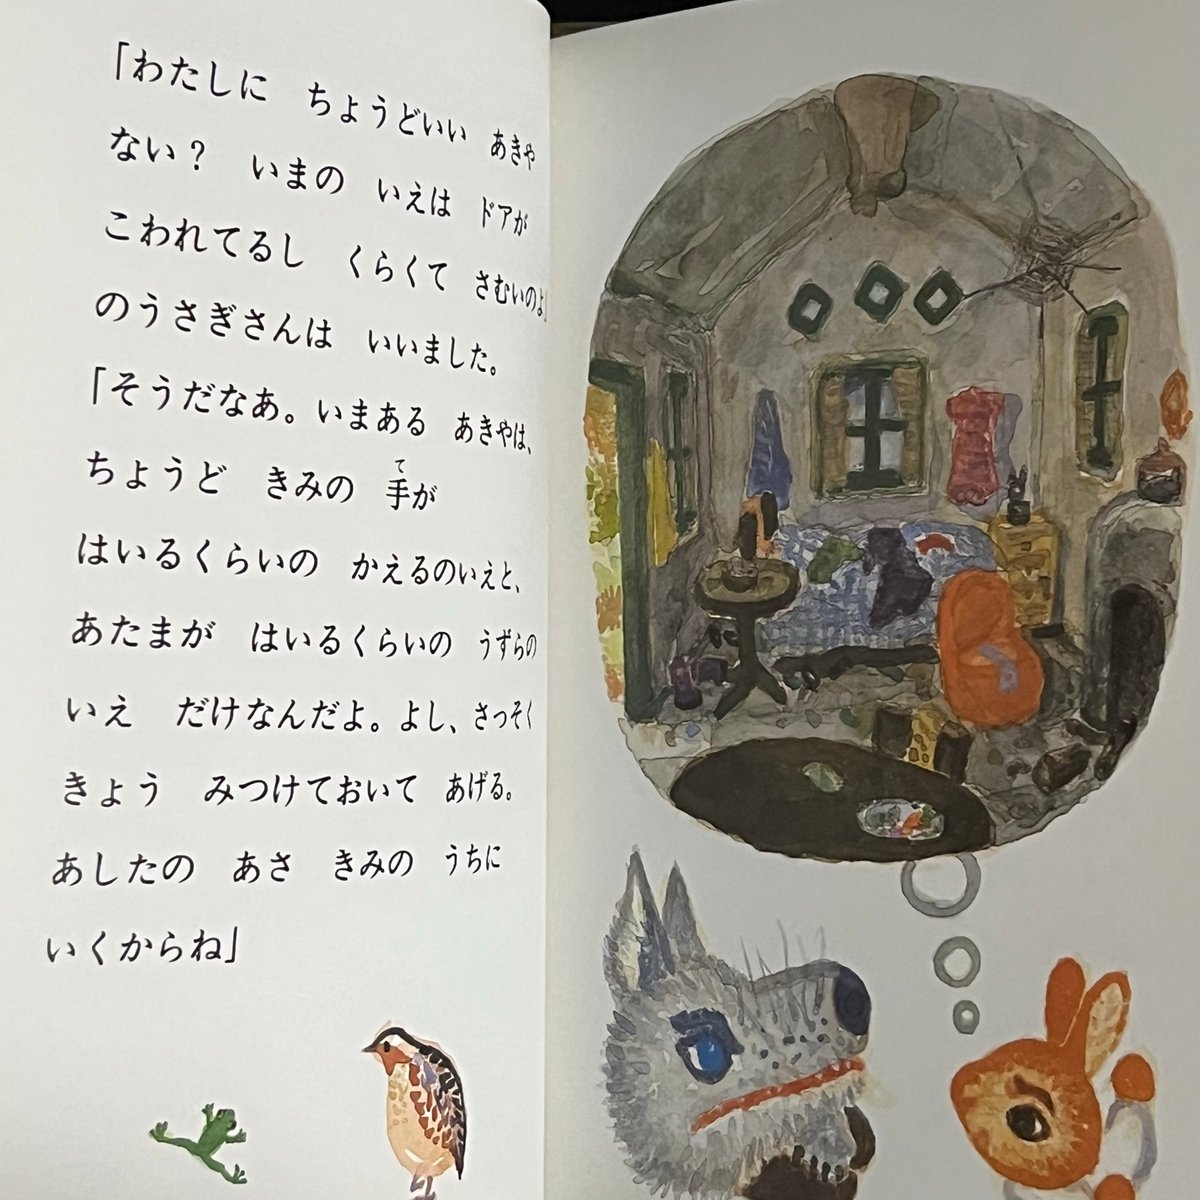 「わたしに　ちょうどいい　あきや
ない？　いまの　いえは　ドアが
こわれてるし　くらくて　さむいのよ」
のうさぎさんは　いいました。
「そうだなあ。いまある　あきやは、
ちょうど　きみの　手が
はいるくらいの　かえるのいえと、
あたまが　はいるくらいの　うずらの
いえ　だけなんだよ。よし、さっそく
きょう　みつけておいて　あげる。
あしたの　あさ　きみの　うちに
いくからね」